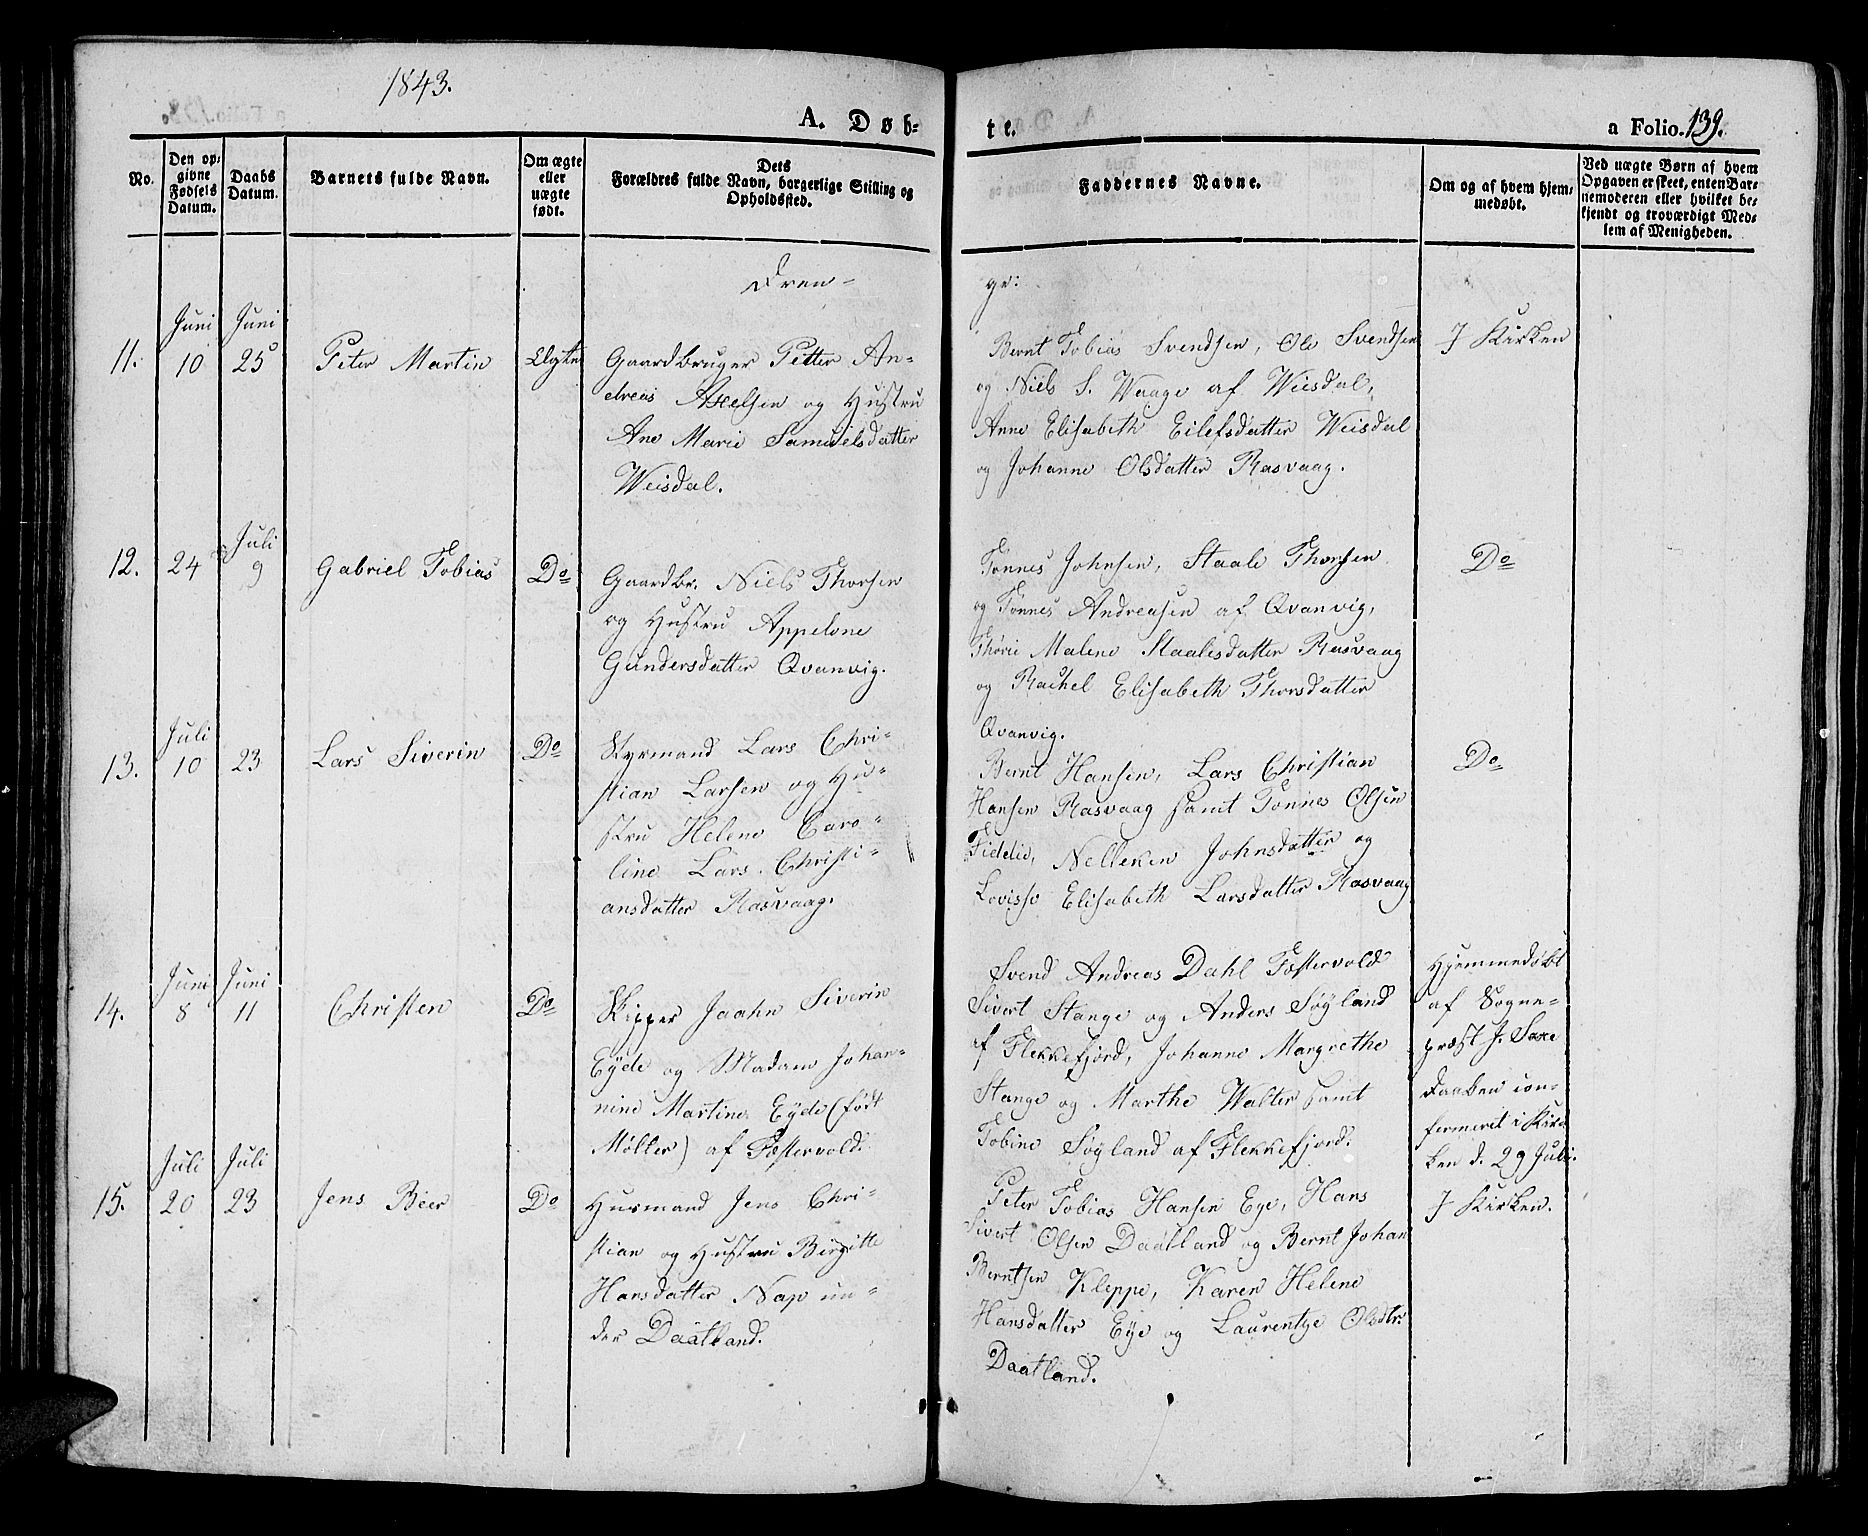 1843.
A. Døb-
te.
a Folio. 139.
No.
Den op-
givne
Fødsels
Datum.
Daabs
Datum.
Barnets fulde Navn.
Om ægte
eller
uægte
født.
Dets
Forældres fulde Navn, borgerlige Stilling og
Opholdssted.
Faddernes Navne.
Om og af hvem hjem-
medøbt.
Ved uægte Børn af hvem
Opgaven er skeet, enten Bar-
nemoderen eller hvilket be-
kjendt og troværdigt Med-
lem af Menigheden.
Dren-
ge:
11.
Juni
10
Juni
25
Peter Martin
Ægte
Gaardbruger Petter An-
dreas Axelsen og Hustru
Ane Marie Samuelsdatter
Weisdal.
Bernt Tobias Svendsen, Ole Svendsen
og Niels S. Waage af Wiisdal,
Anne Elisabeth Eilefsdatter Weisdal
og Johanne Olsdatter Rasvaag.
I Kirken
12.
24
Juli
9
Gabriel Tobias
Do
Gaardbr. Niels Thorsen
og Hustru Appelone
Gundersdatter Qvanvig.
Tønnes Johnsen, Staale Thorsen
og Tønnes Andreasen af Qvanvig,
Thorie Malene Staalesdatter Rasvaag
og Rachel Elisabeth Thorsdatter
Qvanvig.
Do
13.
Juli
10
23
Lars Siverin
Do
Styrmand Lars Chri-
stian Larsen og Hu-
stru Helene Caro-
line Lars Christi-
ansdatter Rasvaag.
Bernt Hansen, Lars Christian
Hansen Rasvaag samt Tønnes Olsen
Fidelie, Nelleken Johnsdatter og
Lovisse Elisabeth Larsdatter Rasvaag
Do
14.
Juni
8
Juni
11
Christen
Do
Skipper Jaahn Siverin
Eyde og Madam Johan-
nine Martine Eyde (født
Møller) af Fæstervold.
Svend Andreas Dahl Fæstervold
Sivert Stange og Anders Søyland
af Flekkefjord, Johanne Margrethe
Stange og Marthe Walter samt
Tobine Søyland af Flekkefjord.
Hjemmedøbt
af Sogne-
præst J. Saxe
Daaben con-
fermeret i Kir-
ken d. 29 Juli.
15.
Juli
20
Juli
23
Jens Beer
Do
Husmand Jens Chri-
stian og Hustru Birgitte
Hansdatter Nap un-
der Daatland.
Peter Tobias Hansen Eye, Hans
Sivert Olsen Daatland og Bernt Johan
Berntsen Kleppe, Karen Helene
Hansdatter Eye og Laurentze Olsdtr.
Daatland.
I Kirken.